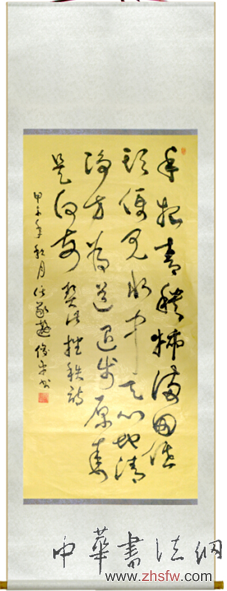 手把青秧插满田低
头便见水中天心地清
净方为道退步原来
是向前 契此插秧诗
甲午年秋月
中華書法網
www.zhsfw.com